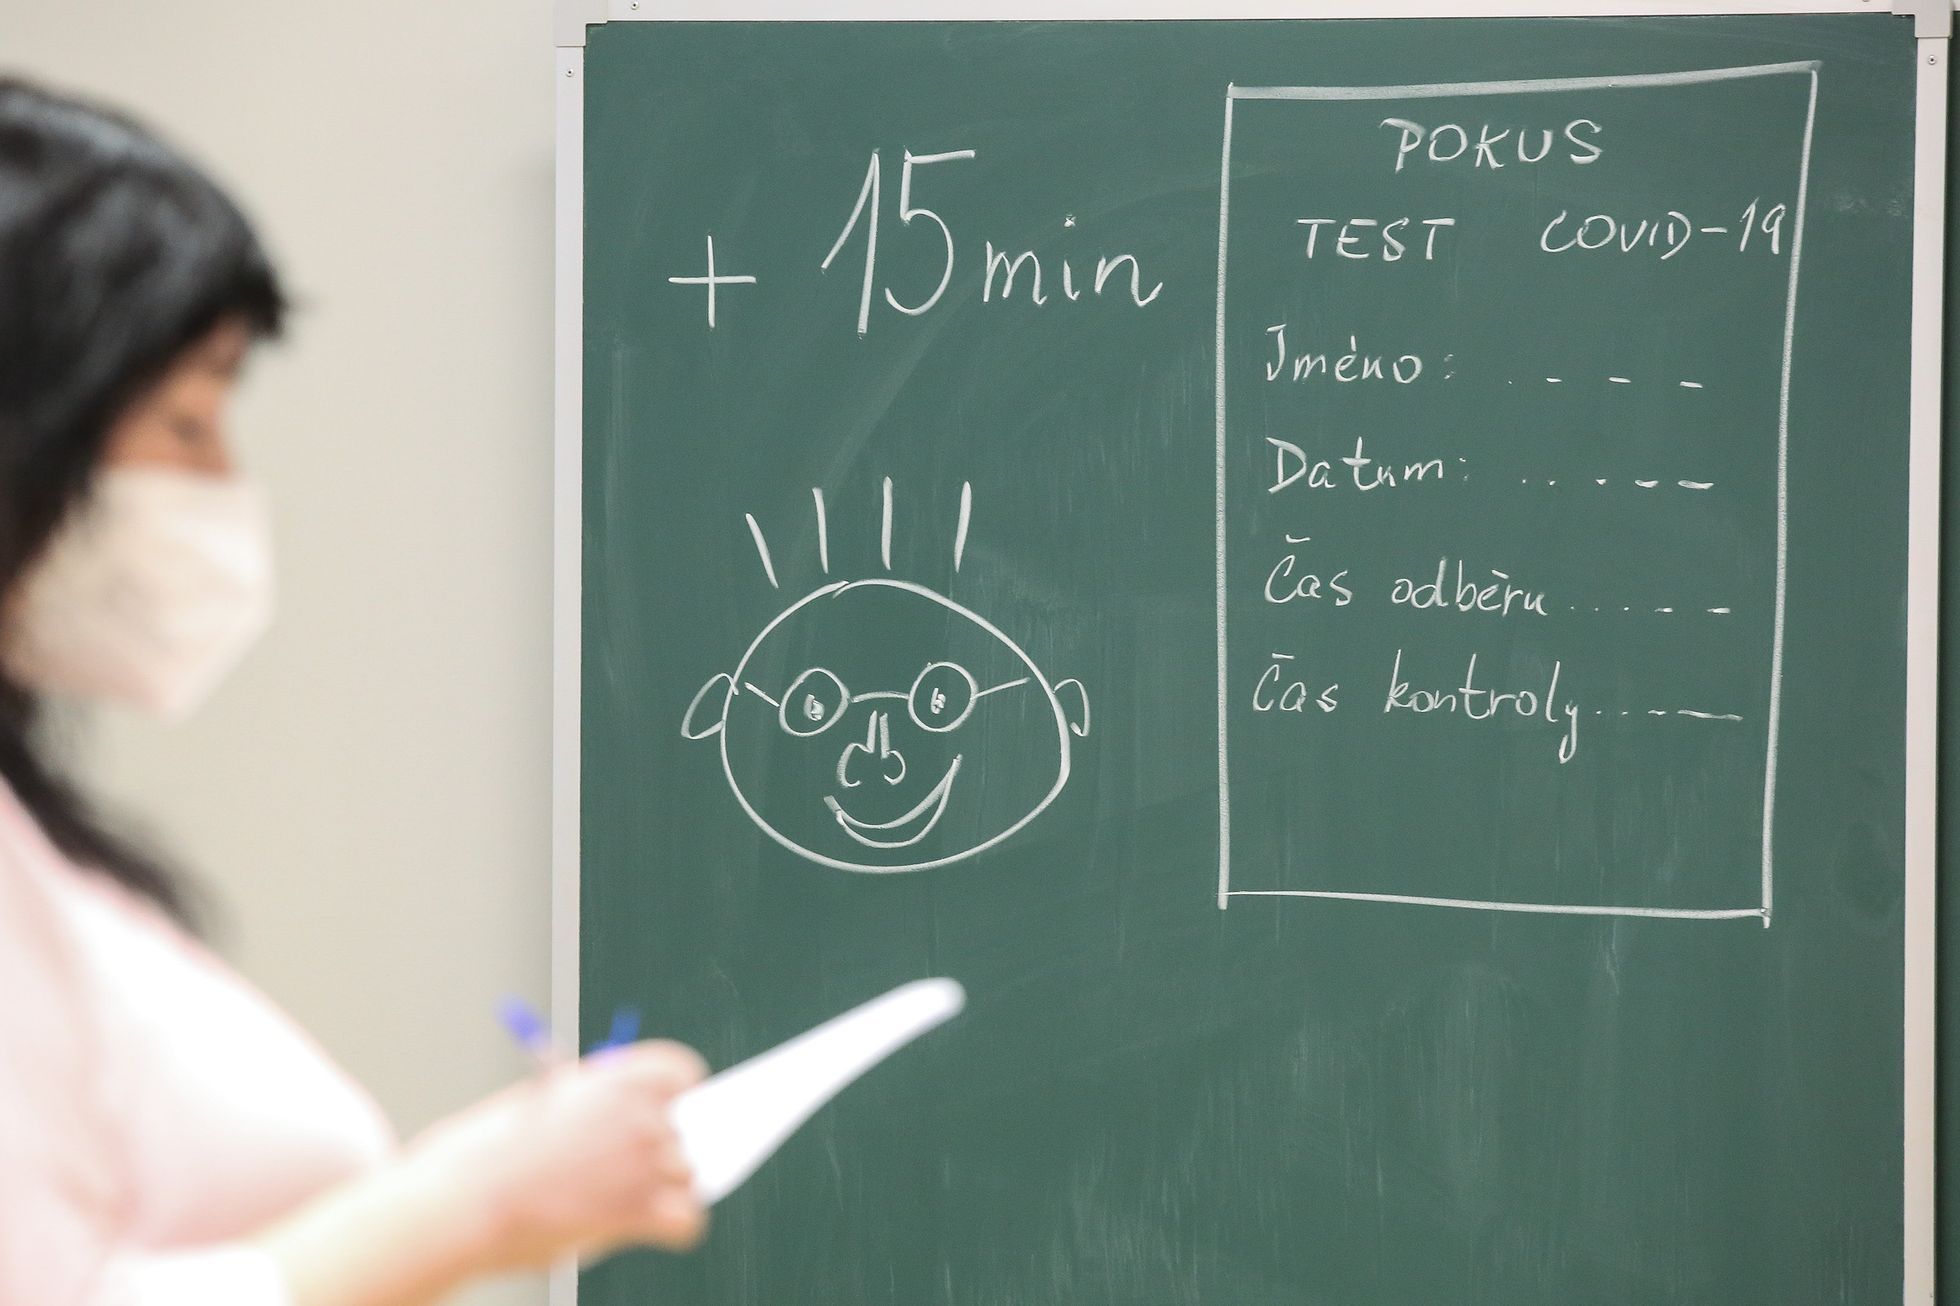 + 15 min
POKUS
TEST COVID-19
Jméno: . - - -
Datum: . . . - - -
Čas odběru . . . . - -
Čas kontroly . . . - —